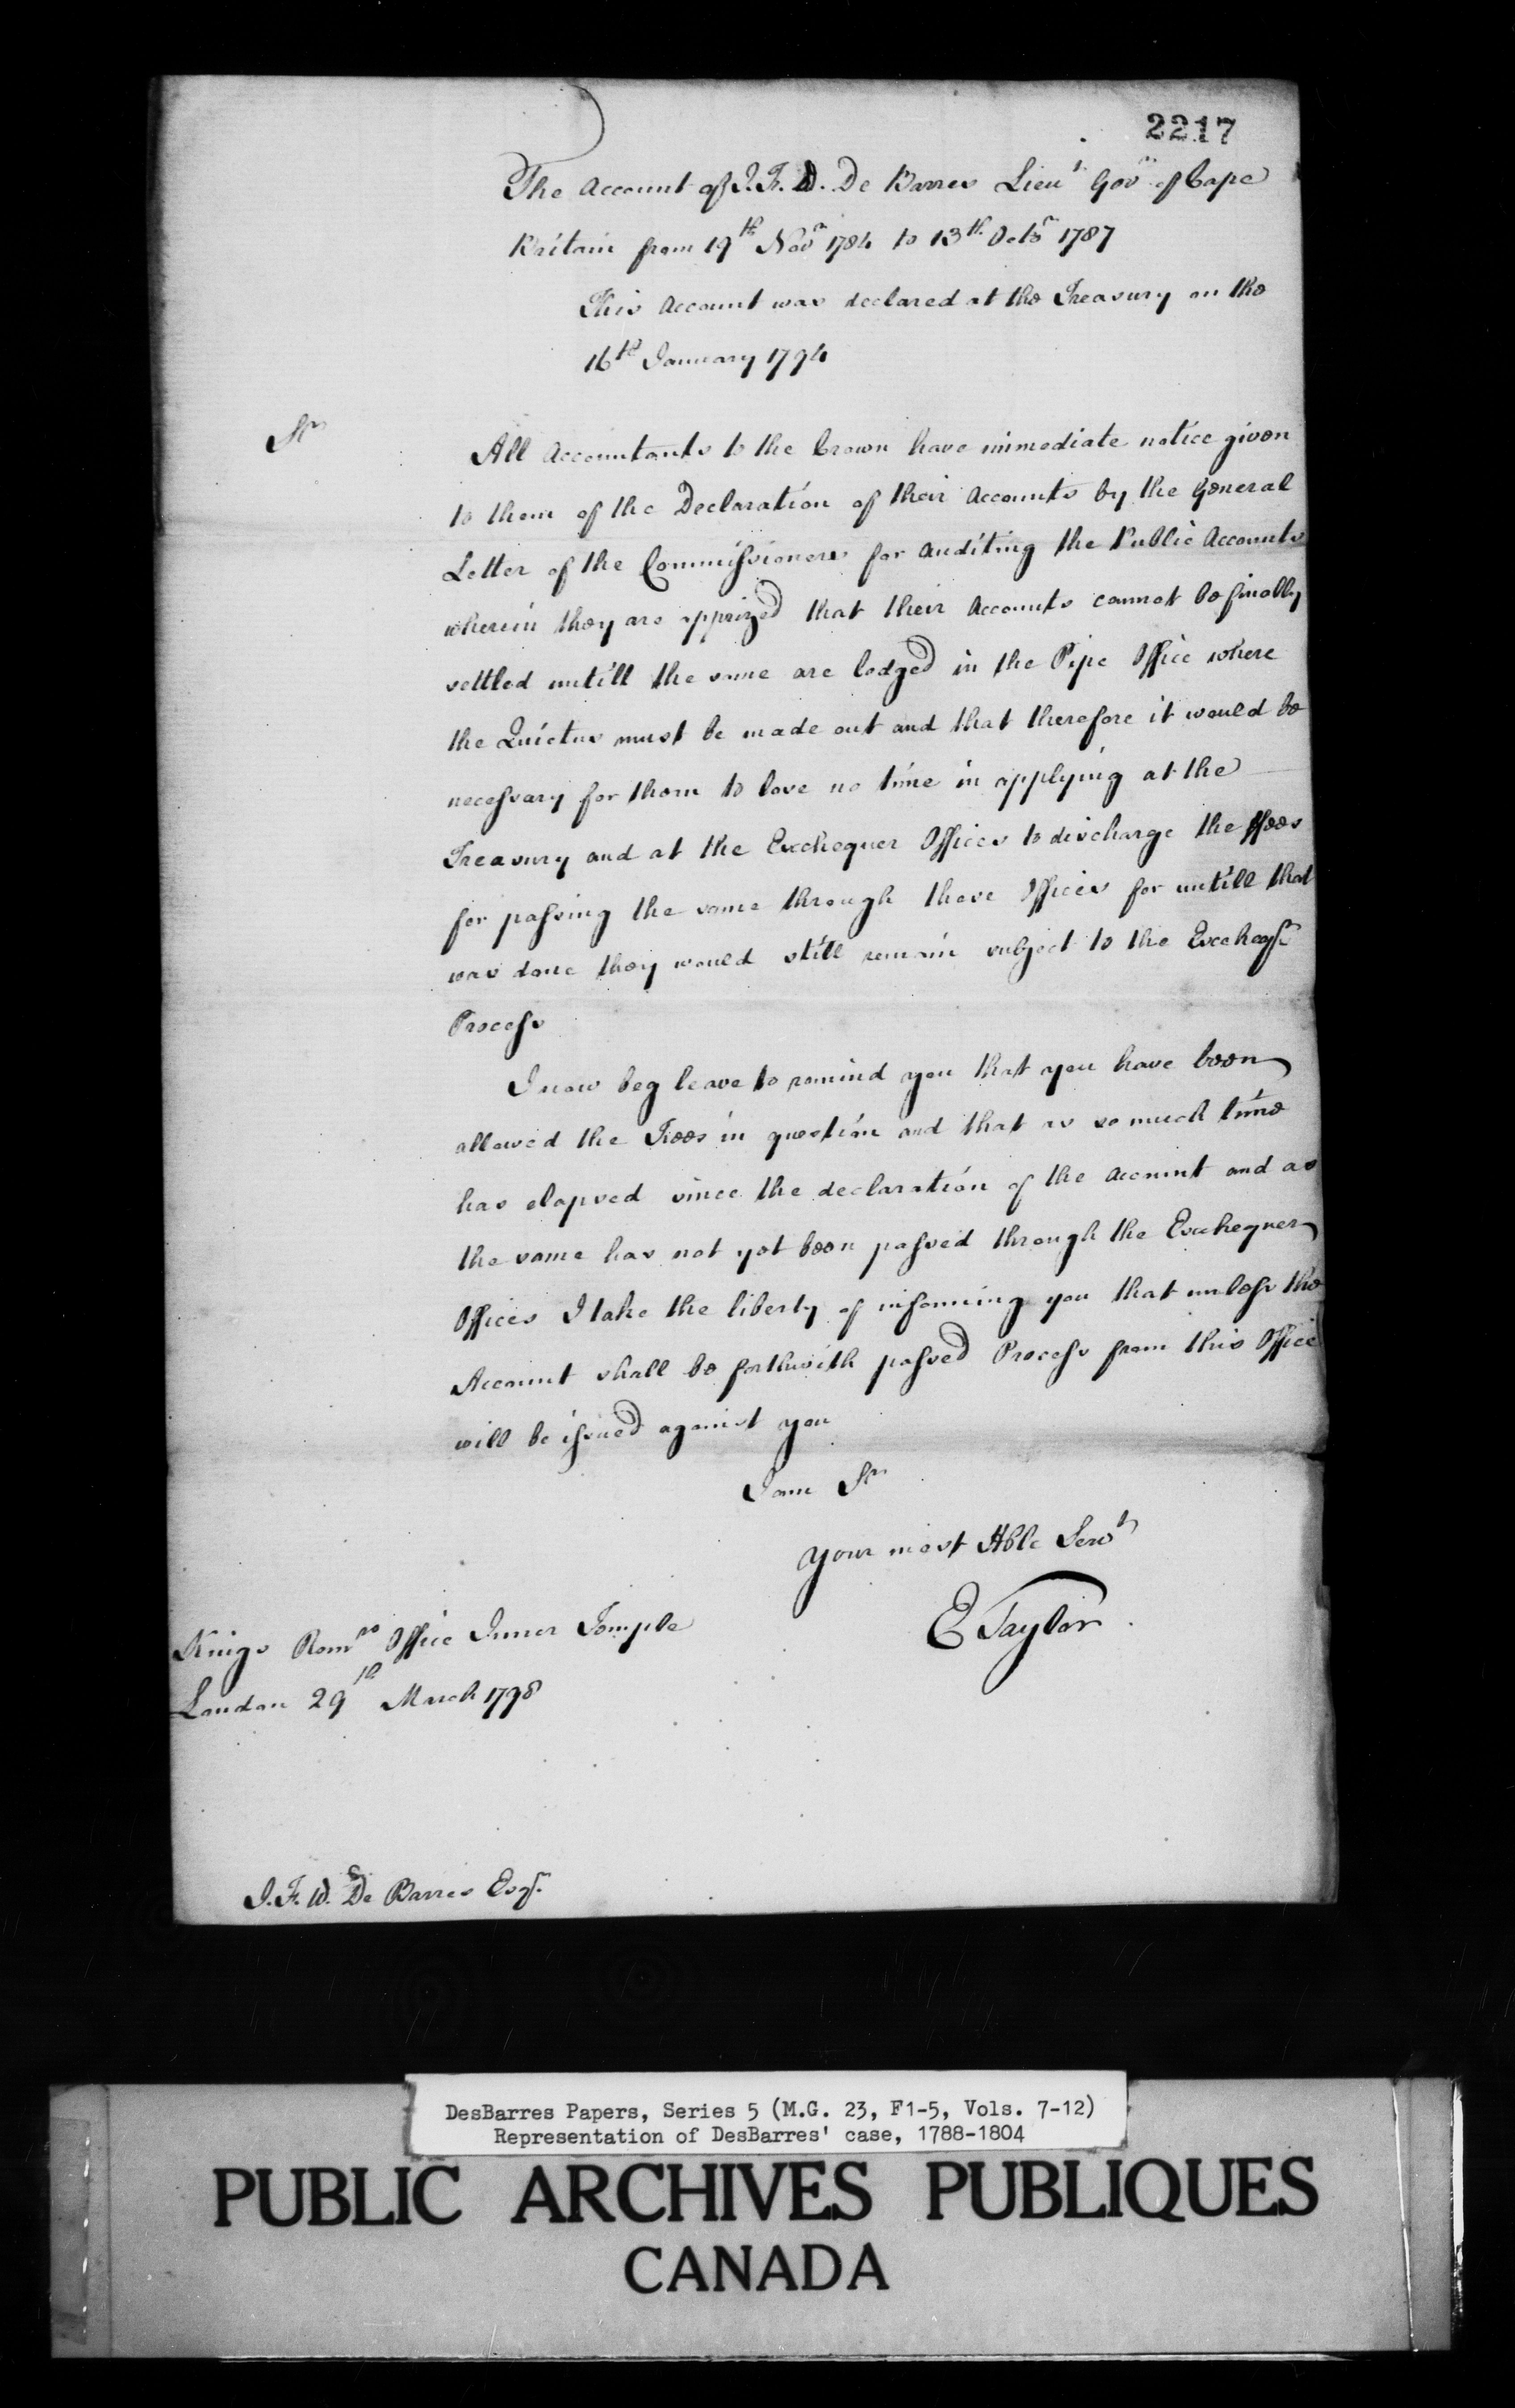 2217
The Account of J. F. W. De Barres Lieut Govr of Cape
Britain from 19th Novr 1784 to 13th Octr 1787
This Account was declared at the Treasury on the
16th January 1794
Sir
All Accountants to the Crown have immediate notice given
to them of the Declaration of their Accounts by the General
Letter of the Commissioners for auditing the Public Accounts
wherein they are apprized that their Accounts cannot be finally
settled untill the same are lodged in the Pipe Office where
the Quietus must be made out and that therefore it would be
necessary for them to lose no time in applying at the
Treasury and at the Exchequer Offices to discharge the ffees
for passing the same through those Offices for untill that
was done they would still remain subject to the Excheqr
Process
I now beg leave to remind you that you have been
allowed the Fees in question and that as so much time
has elapsed since the declaration of the Account and as
the same has not yet been passed through the Exchequer
Offices I take the liberty of informing you that unless the
Account shall be forthwith passed Process from this Office
will be issued against you
I am Sir
Your most Hble Servt
E Taylor
Kings Remres Office Inner Temple
London 29th March 1798
J. F. W. De Barres Esqr.
DesBarres Papers, Series 5 (M.G. 23, F1-5, Vols. 7-12)
Representation of DesBarres' case, 1788-1804
PUBLIC ARCHIVES PUBLIQUES
CANADA